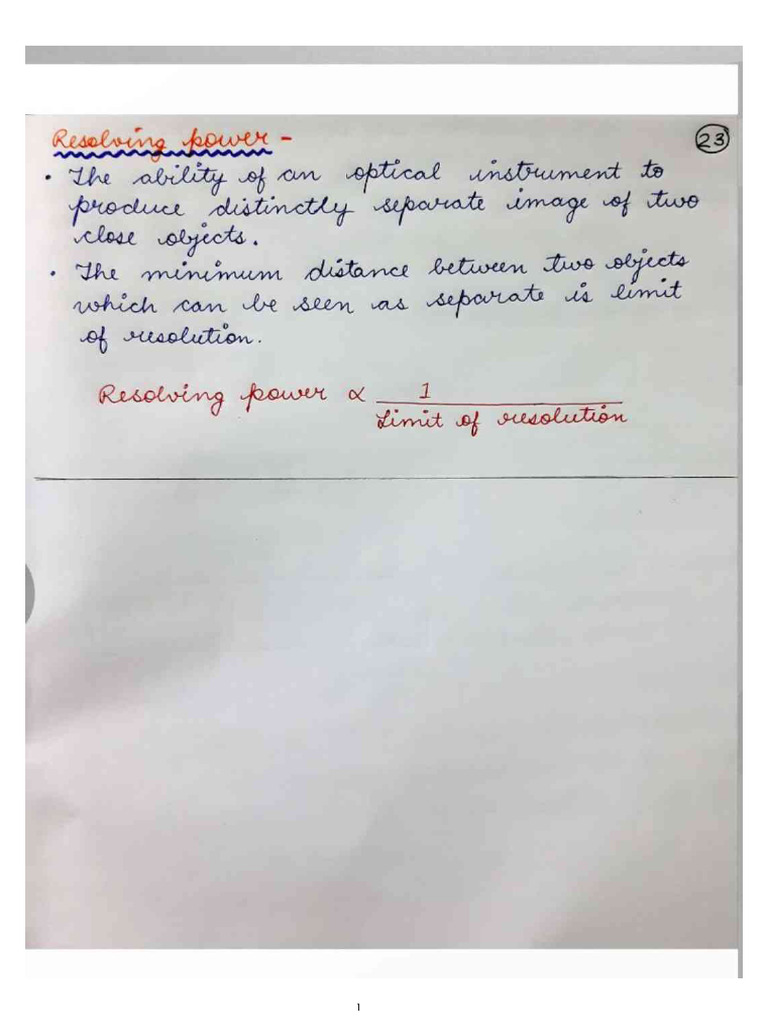 Resolving power -
23
• The ability of an optical instrument to
produce distinctly separate image of two
close objects.
• The minimum distance between two objects
which can be seen as separate is limit
of resolution.
Resolving power ∝ 1
Limit of resolution
1